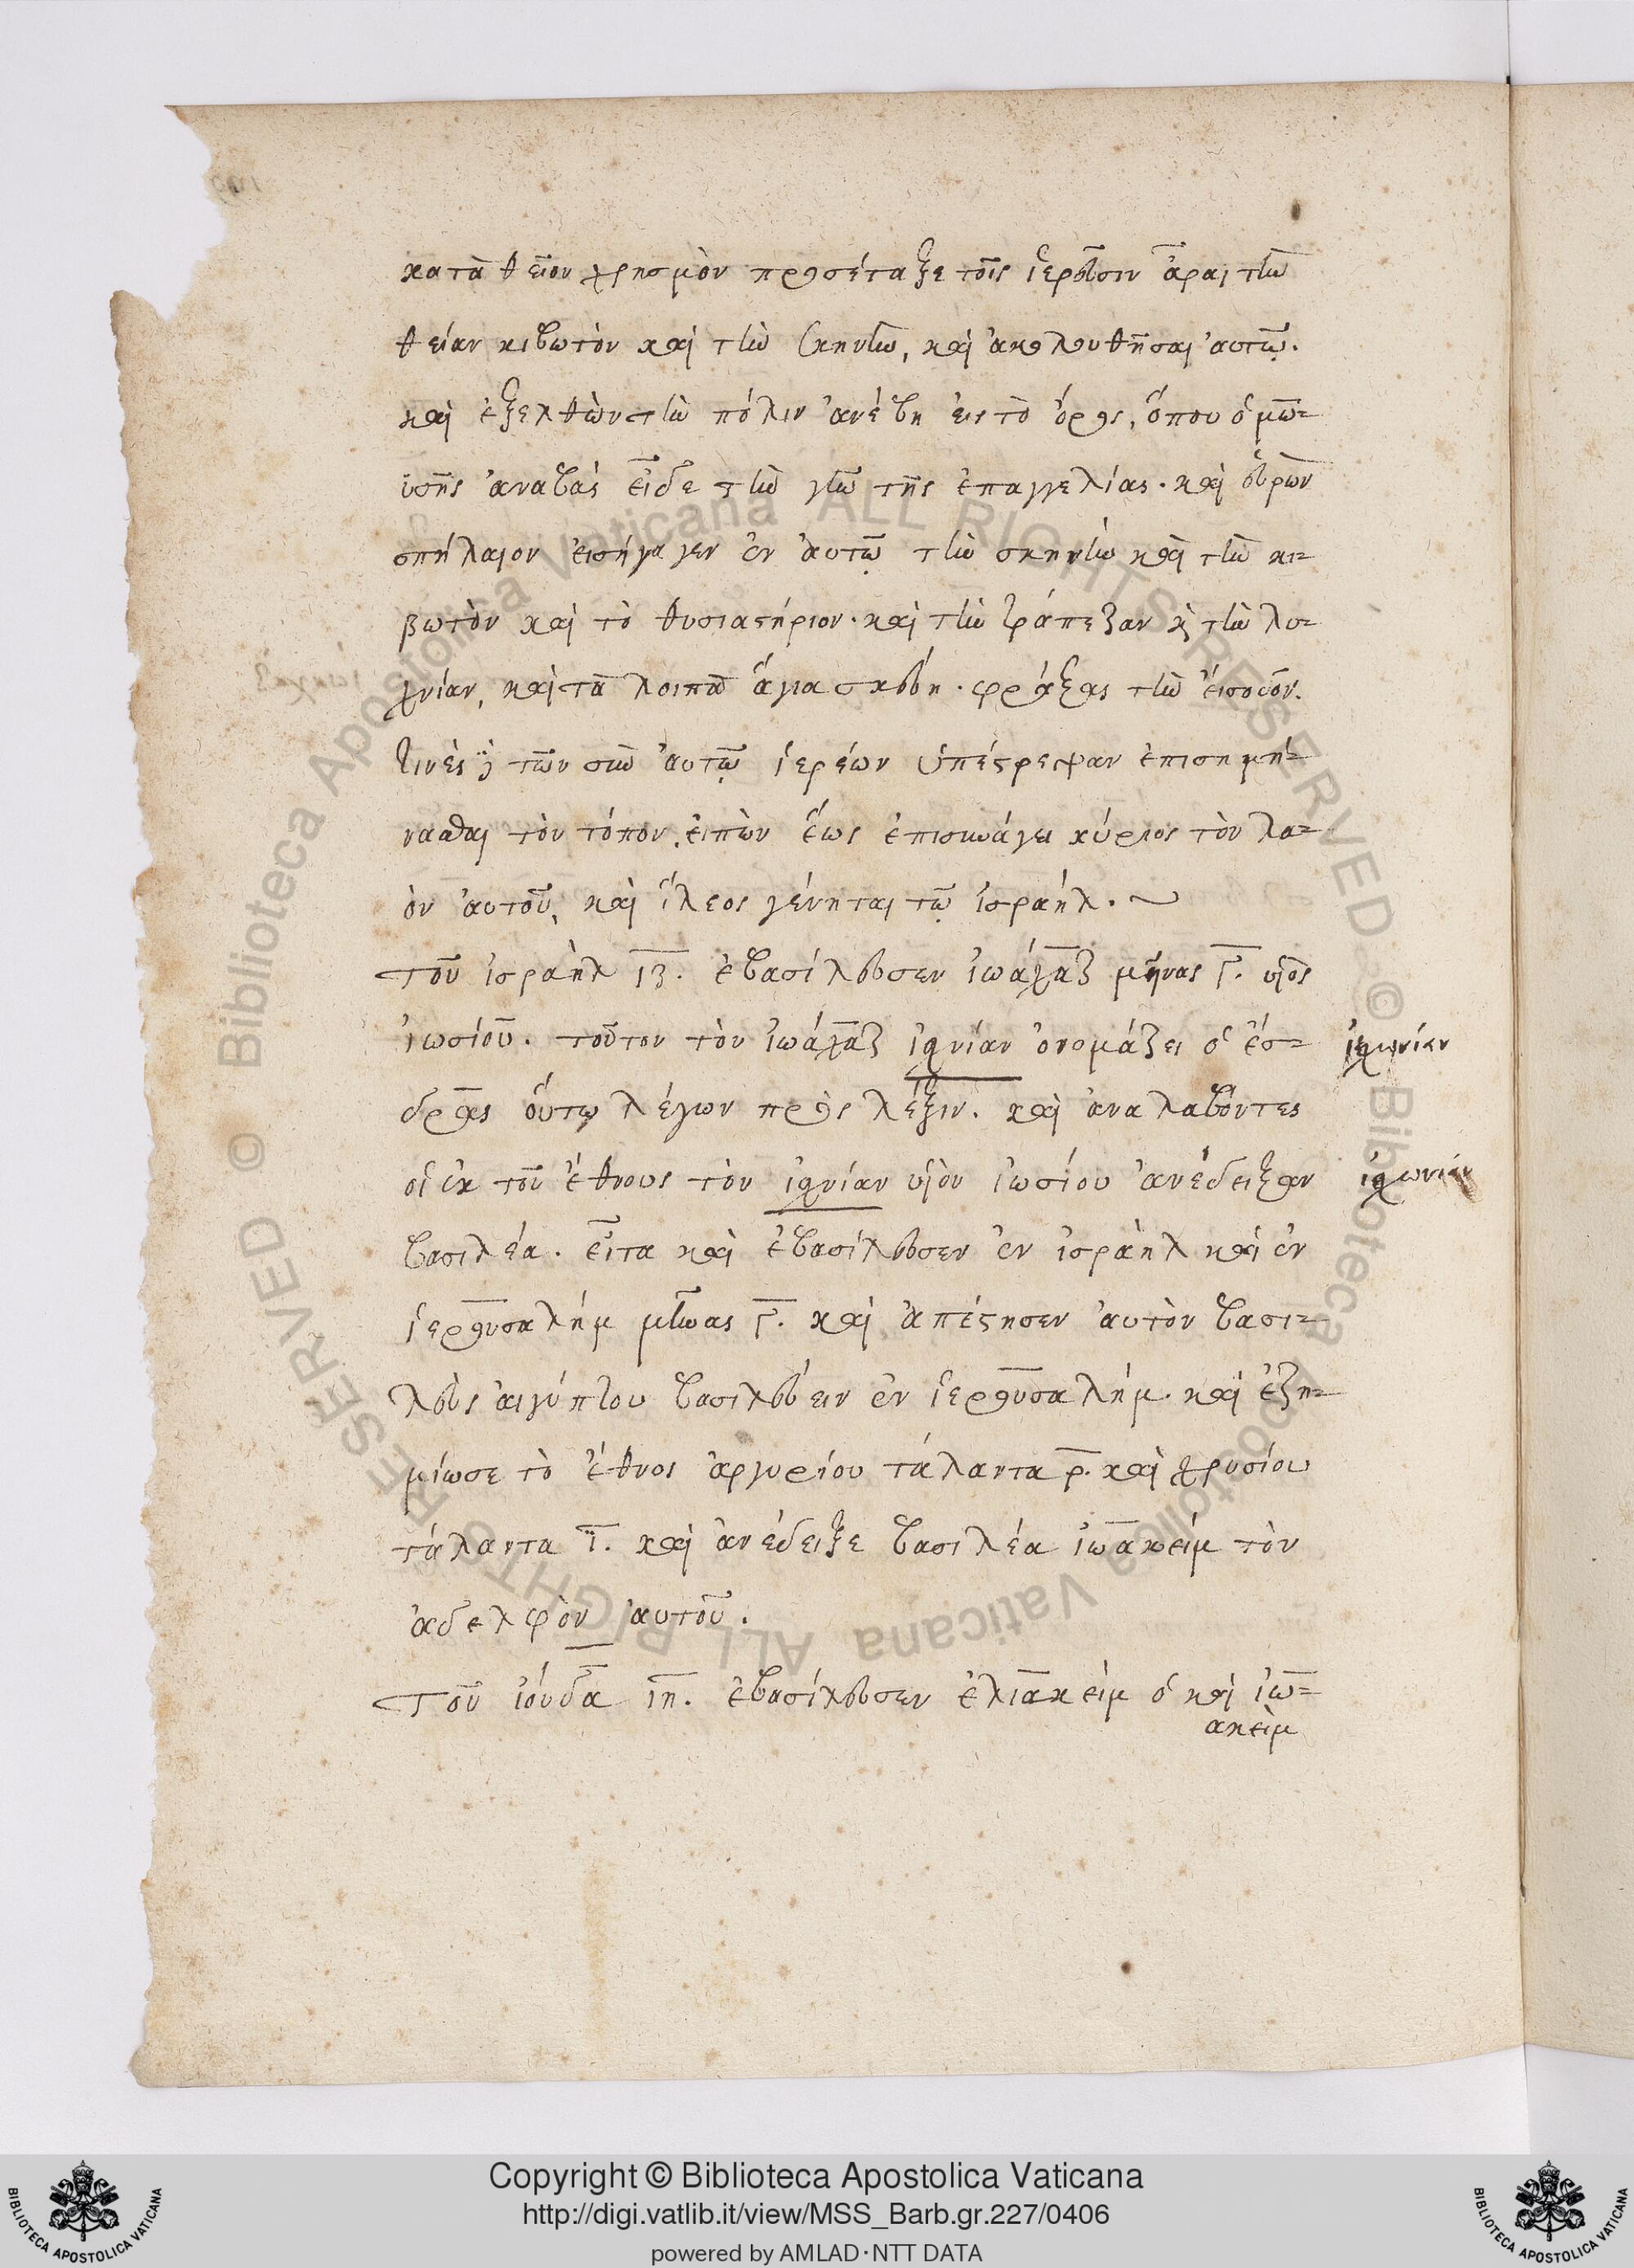 κατὰ θεῖον χρησμὸν προσέταξε τοῖς ἱερεῦσιν ἆραι τὴν
θείαν κιβωτὸν καὶ τὴν σκηνὴν, καὶ ἀκολουθῆσαι αὐτῷ.
καὶ ἐξελθὼν τὴν πόλιν ἀνέβη εἰς τὸ ὄρος, ὅπου ὁ μω=
ϋσῆς ἀναβὰς εἶδε τὴν γῆν τῆς ἐπαγγελίας. καὶ εὑρὼν
σπήλαιον εἰσήγαγεν ἐν αὐτῷ τὴν σκηνὴν καὶ τὴν κι=
βωτὸν καὶ τὸ θυσιαστήριον. καὶ τὴν τράπεζαν κ τὴν λυ=
χνίαν, καὶ τὰ λοιπὰ ἅγια σκεύη. φράξας τὴν εἴσοδον.
τινὲς δὲ τῶν σὺν αὐτῷ ἱερέων ὑπέστρεψαν ἐπισημή=
νασθαι τὸν τόπον. εἰπὼν ἕως ἐπισυνάγει κύριος τὸν λα=
ὸν αὐτοῦ, καὶ ἵλεος γένηται τῷ ἰσραήλ. ~
Τοῦ ἰσραὴλ ιζ. ἐβασίλευσεν ἰωάχαζ μῆνας γ. υἱὸς
ἰωσίου. τοῦτον τὸν ἰωάχαζ ἰχνίαν ὀνομάζει ὁ ἔσ=
ἰεχωνίαν
δρας οὕτω λέγων πρὸς λέξιν. καὶ ἀναλαβόντες
οἱ ἐκ τοῦ ἔθνους τὸν ἰχνίαν υἱὸν ἰωσίου ἀνέδειξαν
ἰεχωνίαν
βασιλέα. εἶτα καὶ ἐβασίλευσεν ἐν ἰσραὴλ καὶ ἐν
ἱερουσαλήμ μῆνας γ. καὶ ἀπέστησεν αὐτὸν βασι=
λεὺς αἰγύπτου βασιλεύειν ἐν ἱερουσαλήμ. καὶ ἐζη=
μίωσε τὸ ἔθνος ἀργυρίου τάλαντα ρ. καὶ χρυσίου
τάλαντα ϊ. καὶ ἀνέδειξε βασιλέα ἰωακεὶμ τὸν
ἀδελφὸν αὐτοῦ.
Τοῦ ἰούδα ιη. ἐβασίλευσεν ἐλιακεὶμ ὁ καὶ ἰω=
ακεὶμ
Copyright © Biblioteca Apostolica Vaticana
http://digi.vatlib.it/view/MSS_Barb.gr.227/0406
powered by AMLAD·NTT DATA
BIBLIOTECA APOSTOLICA VATICANA
BIBLIOTECA APOSTOLICA VATICANA
© Biblioteca Apostolica Vaticana ALL RIGHTS RESERVED
© Biblioteca Apostolica Vaticana ALL RIGHTS RESERVED